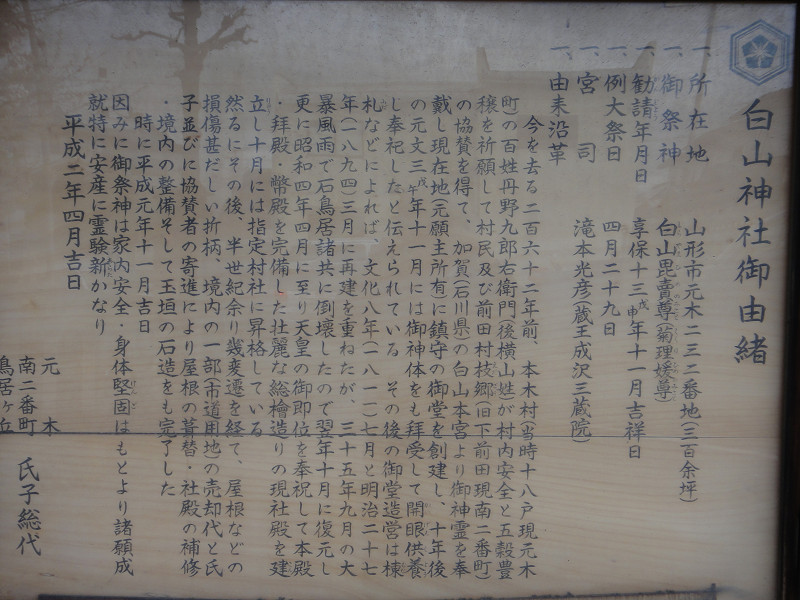 白山神社御由緒
一、所在地 山形市元木二三二番地(三百余坪)
一、御祭神 白山毘賣尊(菊理媛尊)
一、勧請年月日 享保十三戊申年十一月吉祥日
一、例大祭日 四月二十九日
一、宮司 滝本光彦(蔵王成沢三蔵院)
一、由来沿革
今を去る二百六十二年前、本木村(当時十八戸現元木
町)の百姓丹野九郎右衛門後横山姓)が村内安全と五穀豊
穣を祈願して村民及び前田村枝郷(旧下前田現南二番町)
の協賛を得て、加賀(石川県)の白山本宮より御神霊を奉
戴し現在地(元願主所有)に鎮守の御堂を創建し、十年後
の元文三戊午年十一月には御神体をも拝受して開眼供養
し奉祀したと伝えられている その後の御堂造営は棟
札などによれば、文化八年(一八一一)七月と明治二十七
年(一八九四)三月に再建を重ねたが、三十五年九月の大
暴風雨で石鳥居諸共に倒壊したので翌年十月に復元し
更に昭和四年四月に至り天皇の御即位を奉祝して本殿
・拝殿・幣殿を完備した壮麗な総檜造りの現社殿を建
立し十月には指定村社に昇格している
然るにその後、半世紀余り幾変遷を経て、屋根などの
損傷甚だしい折柄、境内の一部(市道用地)の売却代と氏
子並びに協賛者の寄進により屋根の葺替・社殿の補修
・境内の整備そして玉垣の石造をも完了した
時に平成元年十一月吉日
因みに御祭神は家内安全・身体堅固はもとより諸願成
就特に安産に霊験新かなり
平成二年四月吉日
元木
南二番町 氏子総代
鳥居ヶ丘